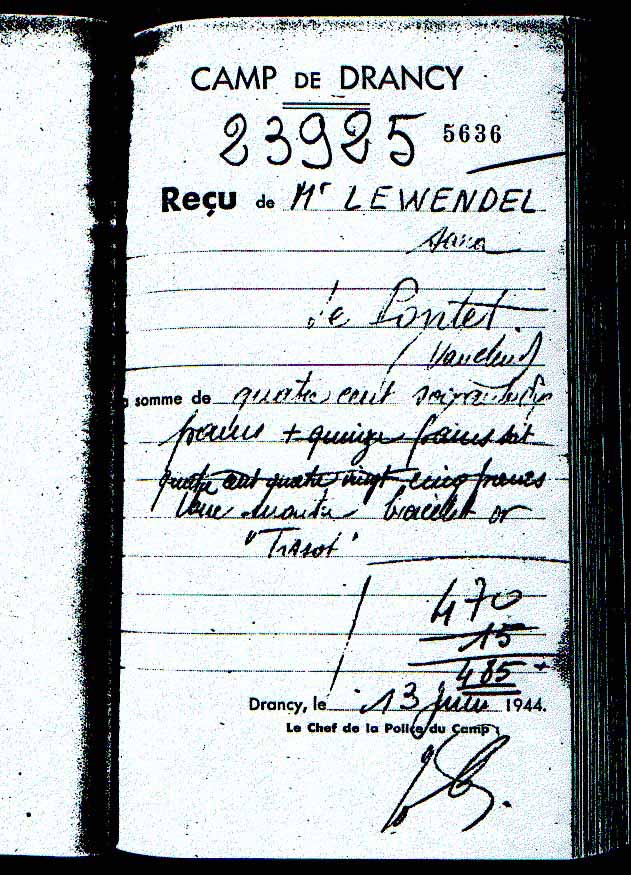 CAMP DE DRANCY
23925 5636
Reçu de Mr LEWENDEL
le Pontet
Vaucluse
somme de quatre cent soixante dix
francs + quinze francs soit
quatre cent quatre vingt cinq francs
Une montre bracelet or
"Tissot"
470
15
485
Drancy, le 13 juin 1944.
Le Chef de la Police du Camp